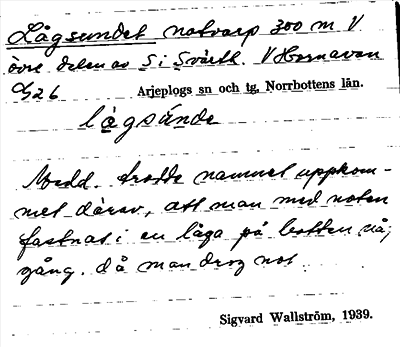 Lågsundet notvarp 300 m V
övre delen av S i Svärtk. V Hornavan
Arjeplogs sn och tg, Norrbottens län.
lågsúnde
Medd. trodde namnet uppkom-
met därav, att man med noten
fastnat i en låga på botten nå,
gång. då man drog not
Sigvard Wallström, 1939.